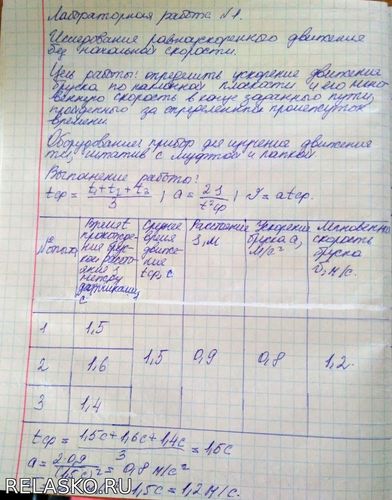 Лабораторная работа №1.
Исследование равноускоренного движения
без начальной скорости.
Цель работы: определить ускорение движения
бруска по наклонной плоскости и его мгно-
венную скорость в конце заданного пути,
пройденного за определенный промежуток
времени.
Оборудование: прибор для изучения движения
тел, штатив с муфтой и лапкой
Выполнение работы:
tср = t₁+t₂+t₃/3 ; a = 2S/t²ср ; V = atср.
№ опыта
Время t
прохожде-
ния брус-
ком расстоя-
яние S
между
датчиками,
с
Среднее
время
движе-
ния
tср, с
Расстояние
S, м
Ускорение
бруска a,
м/с²
Мгновенная
скорость
бруска
V, м/с.
1 1,5
2 1,6 1,5 0,9 0,8 1,2
3 1,4
tср = 1,5с+1,6с+1,4с/3 = 1,5с
a = 2·0,9/(1,5с)² = 0,8 м/с²
1,5с = 1,2 м/с.
RELASKO.RU